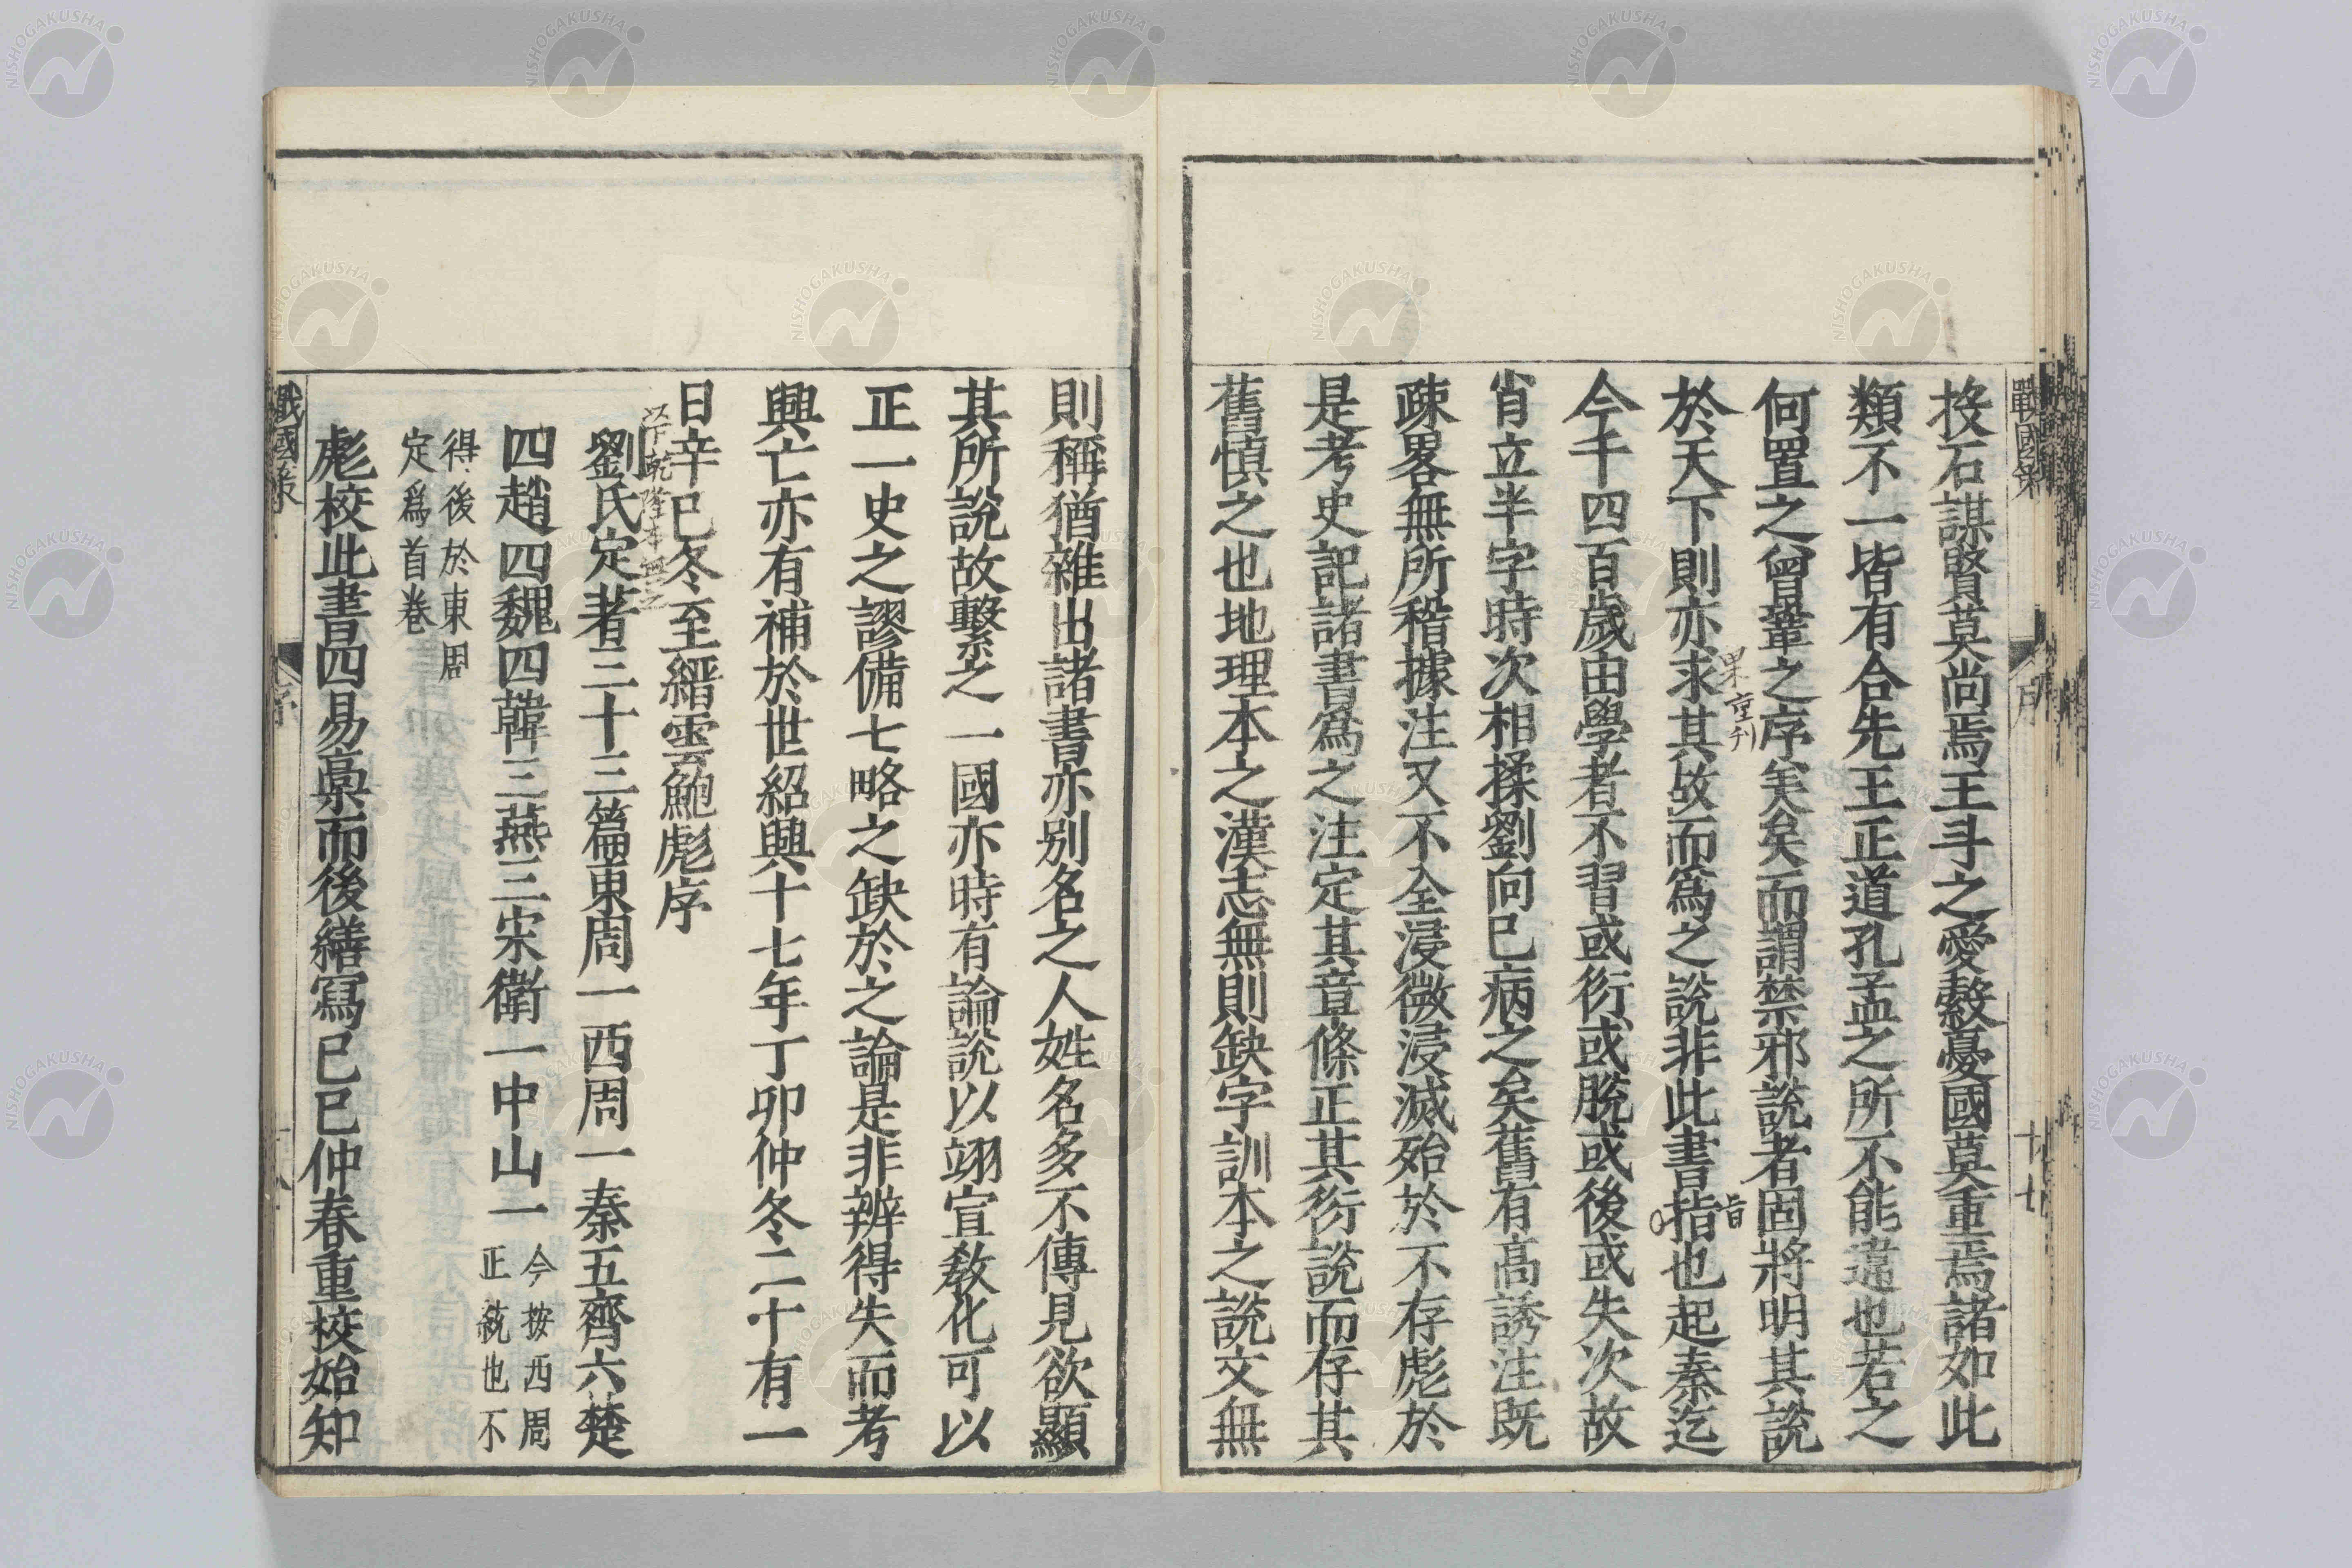 戰國策
序
十七
投石謀賢莫尚焉王斗之愛縠憂國莫重焉諸如此
類不一皆有合先王正道孔孟之所不能違也若之
何置之曾鞏之序美矣而謂禁邪說者固將明其說
果重刊
於天下則亦求其故而爲之說非此書指也起秦迄
旨
今千四百歲由學者不習或衍或脫或後或失次故
肖立半字時次相揉劉向已病之矣舊有高誘注既
疎畧無所稽據注又不全浸微浸滅殆於不存彪於
是考史記諸書爲之注定其章條正其衍說而存其
舊慎之也地理本之漢志無則缺字訓本之說文無
則稱猶雜出諸書亦別名之人姓名多不傳見欲顯
其所說故繫之一國亦時有論說以翊宣敎化可以
正一史之謬備七略之缺於之論是非辨得失而考
興亡亦有補於世紹興十七年丁卯仲冬二十有一
日辛巳冬至縉雲鮑彪序
乾隆本無之
劉氏定著三十三篇東周一西周一秦五齊六楚
四趙四魏四韓三燕三宋衛一中山一今按西周
正統也不
得後於東周
定爲首卷
彪校此書四易稾而後繕寫已巳仲春重校始知
戰國策
序
十八